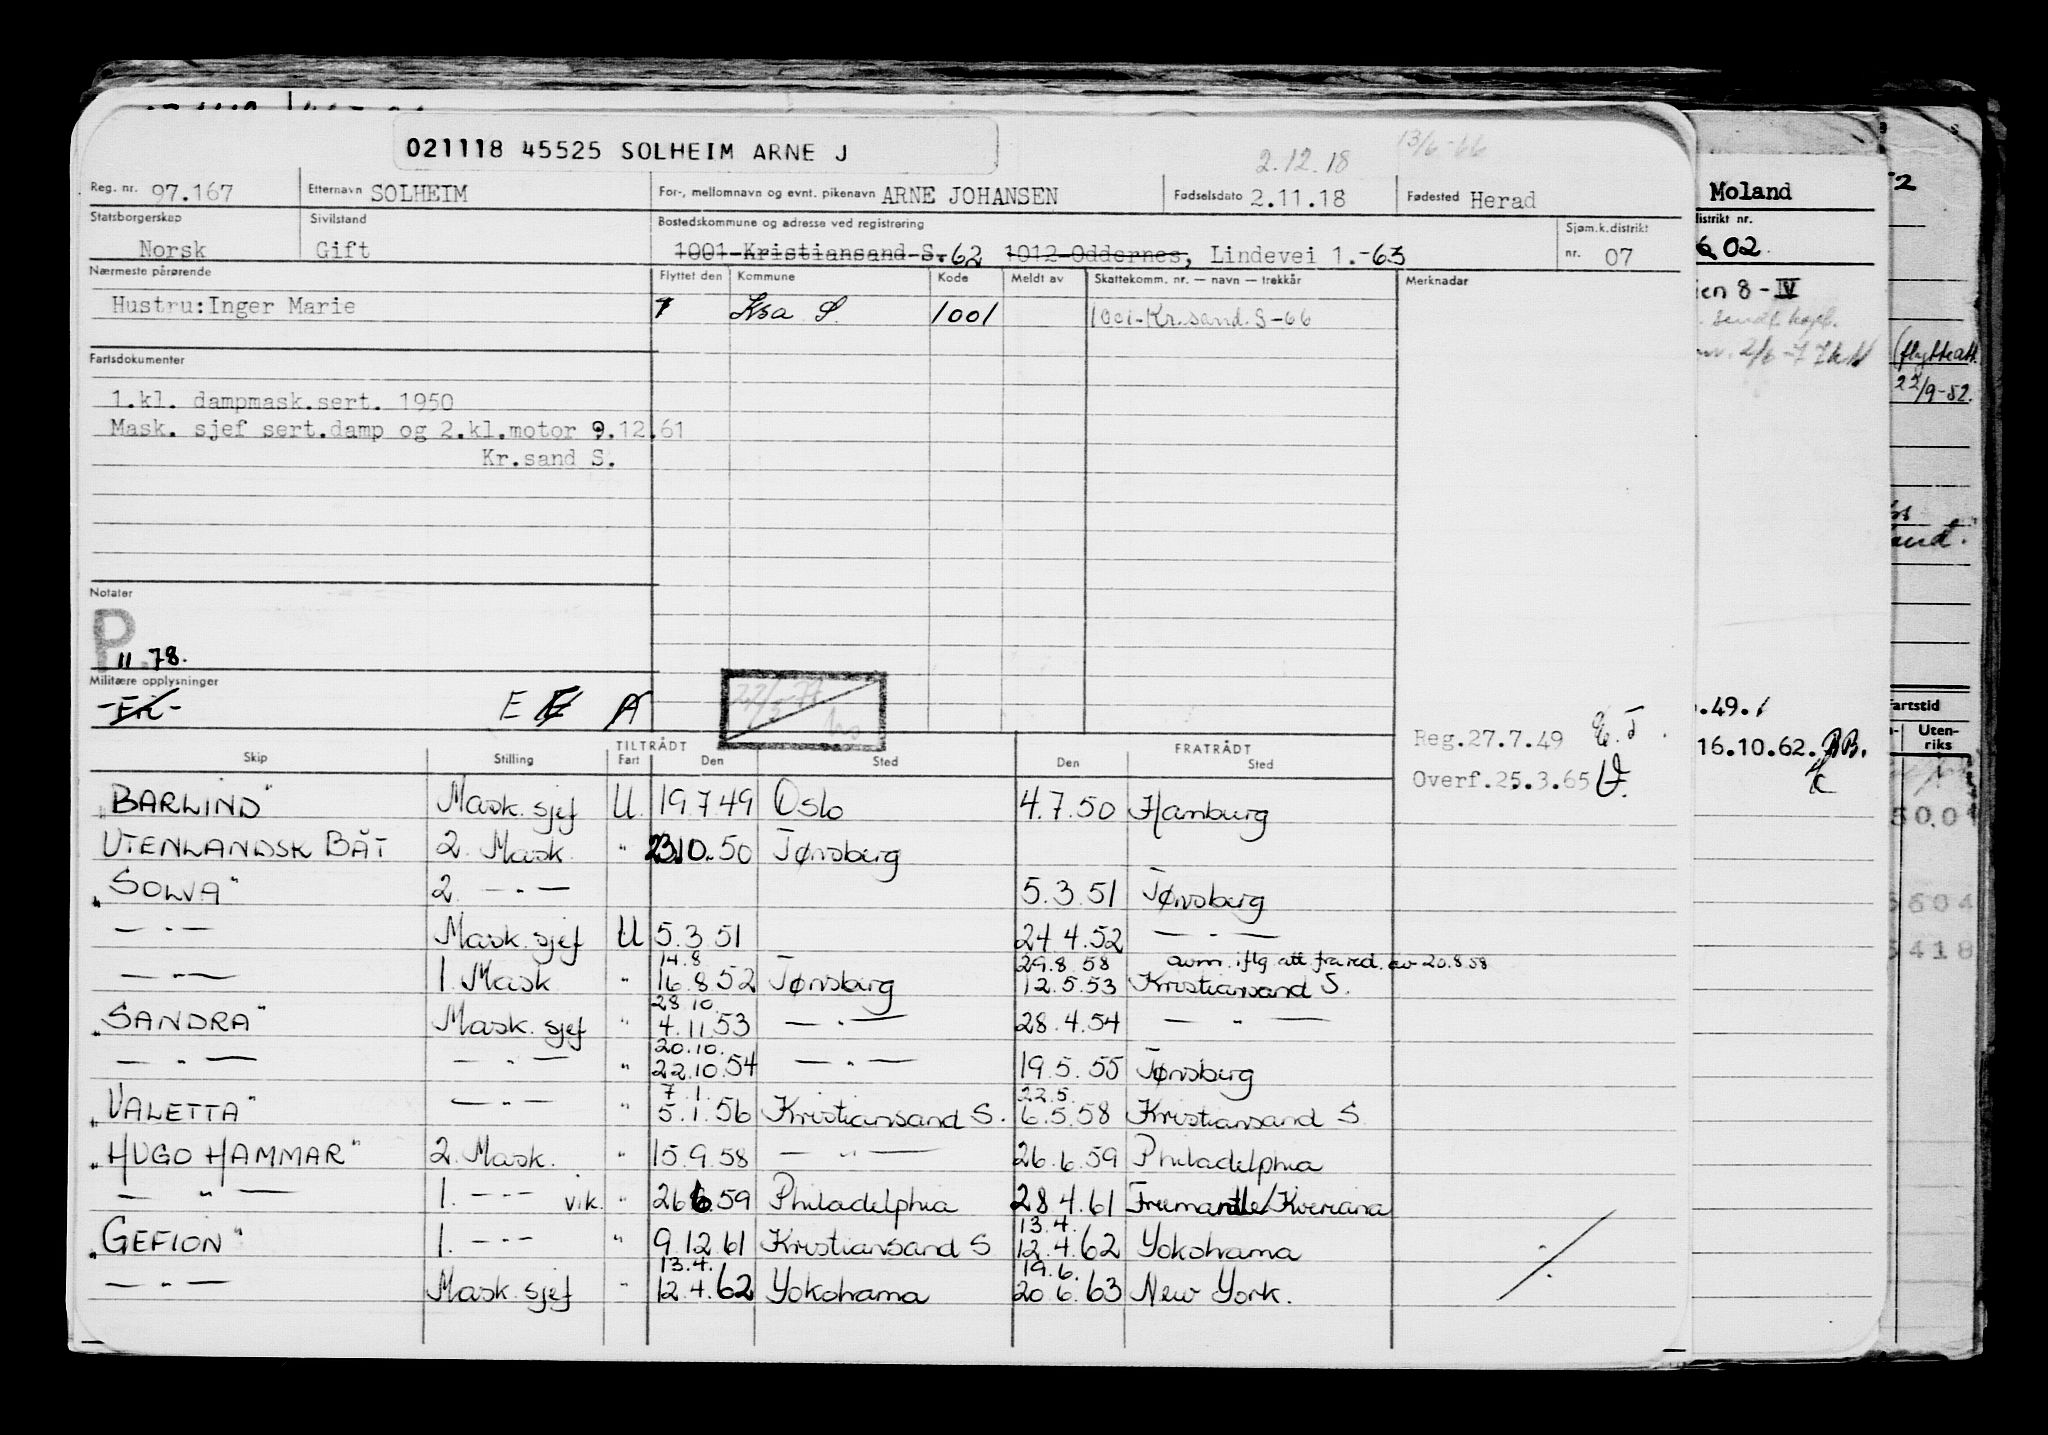 021118 45525 SOLHEIM ARNE J
2.12.18
13/6-66
Reg. nr. 97.167 Etternavn SOLHEIM For-, mellomnavn og evnt. pikenavn ARNE JOHANSEN Fødselsdato 2.11.18 Fødested Herad
Statsborgerskap Sivilstand Bostedskommune og adresse ved registrering Sjøm.k.distrikt
Norsk Gift 1001 Kristiansand S. 62 1012 Oddernes, Lindevei 1.-63 nr. 07
Nærmeste pårørende Flyttet den Kommune Kode Meldt av Skattekomm. nr. — navn — trekkår Merknader
Hustru: Inger Marie Ksa S. 1001 1001-Kr.sand.S-66
Fartsdokumenter
1.kl. dampmask.sert. 1950
Mask. sjef sert.damp og 2.kl.motor 9.12.61
Kr.sand S.
Notater
P
11.78.
Militære opplysninger
E A
Reg.27.7.49
Overf.25.3.65
TILTRÅDT FRATRÅDT
Skip Stilling Fart Den Sted Den Sted
"BARLIND" Mask. sjef U. 19.7.49 Oslo 4.7.50 Hamburg
UTENLANDSK BÅT 2. Mask. " 23.10.50 Tønsberg
"SOLVA" 2. —"— 5.3.51 Tønsberg
—"— Mask. sjef U 5.3.51 24.4.52 —"—
14.8 29.8.58 avm. iflg att. fra red. av 20.8.58
—"— 1. Mask " 16.8.52 Tønsberg 12.5.53 Kristiansand S.
28.10.
"SANDRA" Mask. sjef " 4.11.53 —"— 28.4.54 —"—
20.10.
—"— —"— " 22.10.54 —"— 19.5.55 Tønsberg
7.1. 22.5.
"VALETTA" —"— " 5.1.56 Kristiansand S. 6.5.58 Kristiansand S
"HUGO HAMMAR" 2. Mask. " 15.9.58 —"— 26.6.59 Philadelphia
—"— 1. —"— vik. " 26.6.59 Philadelphia 28.4.61 Fremantle/Kwinana
13.4.
"GEFION" 1. —"— " 9.12.61 Kristiansand S 12.4.62 Yokohama
13.4. 19.6.
—"— Mask. sjef " 12.4.62 Yokohama 20.6.63 New York.
Moland
distrikt nr.
02
ien 8-IV
.49.
16.10.62.
(flytteatt.
22/9-52.
Fartstid
Uten-
riks